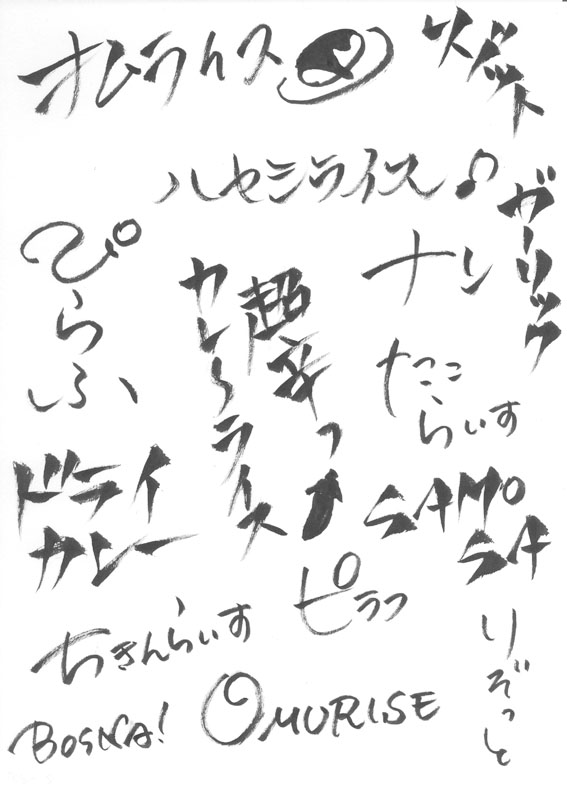 オムライス
リゾット
ハヤシライス♪
ガーリック
ぴらふ
超辛っ
カレーライス
ナン
たこらいす
ドライ
カレー
SAMO
SA
ピラフ
ちきんらいす
りぞっと
BOSNA!
OMURISE